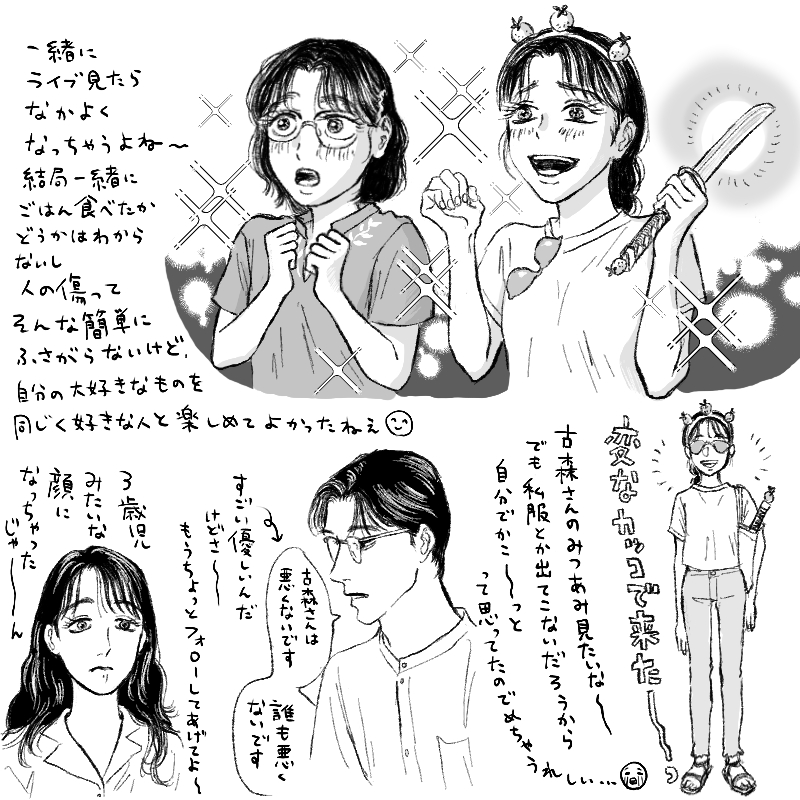 一緒に
ライブ見たら
なかよく
なっちゃうよね〜
結局一緒に
ごはん食べたか
どうかはわから
ないし
人の傷って
そんな簡単に
ふさがらないけど、
自分の大好きなものを
同じく好きな人と楽しめてよかったねぇ
変なカッコで来た〜〜〜っ
古森さんのみつあみ見たいな〜
でも私服とか出てこないだろうから
自分でかこ〜〜っと
って思ってたのでめちゃうれしい…
古森さんは
悪くないです
誰も悪く
ないです
すごい優しいんだ
けどさ〜〜
もうちょっとフォローしてあげてよ〜
3歳児
みたいな
顔に
なっちゃった
じゃ〜〜〜ん